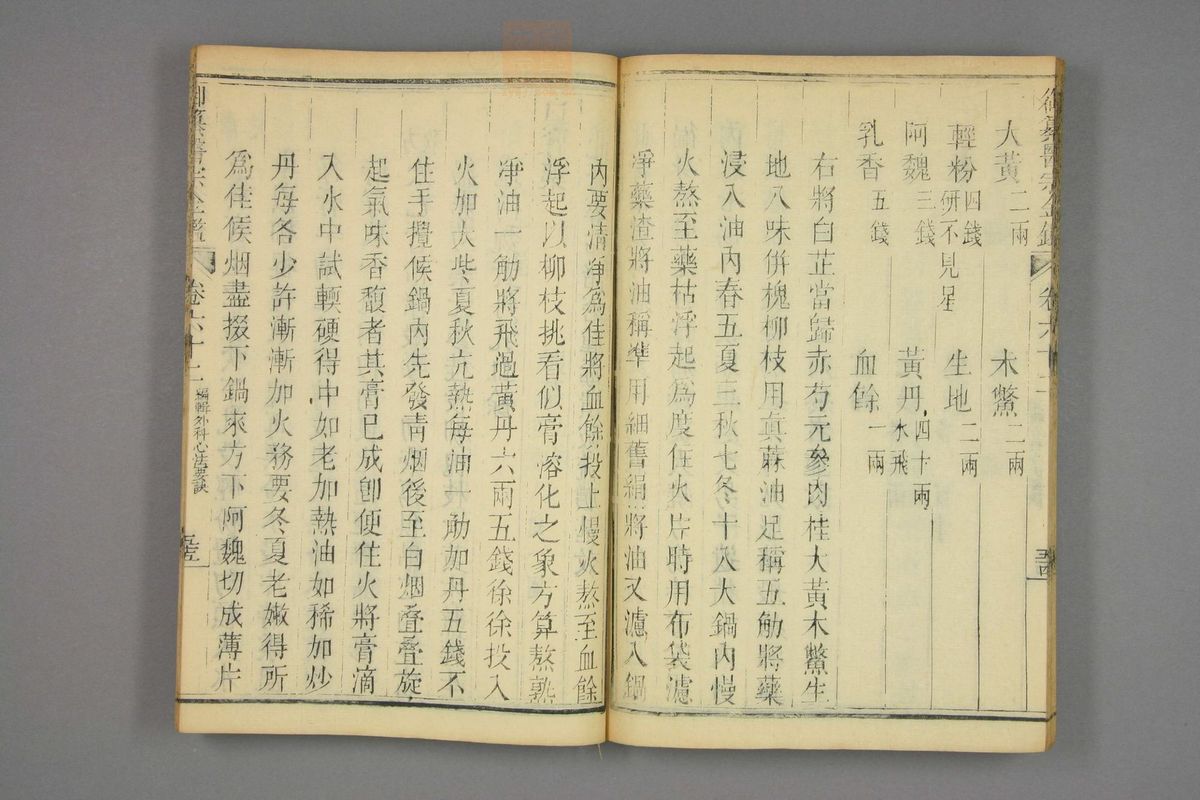 御纂醫宗金鑑 卷六十二
大黃二兩 木鱉二兩
輕粉四錢研不見星 生地二兩
阿魏三錢 黃丹四十兩水飛
乳香五錢 血餘一兩
右將白芷當歸赤芍元參肉桂大黃木鱉生
地八味併槐柳枝用真蔴油足稱五觔將藥
浸入油內春五夏三秋七冬十入大鍋內慢
火熬至藥枯浮起為度住火片時用布袋濾
淨藥渣將油稱準用細舊絹將油又濾入鍋
內要清淨為佳將血餘投上慢火熬至血餘
浮起以柳枝挑看似膏熔化之象方算熬熟
淨油一觔將飛過黃丹六兩五錢徐徐投入
火加大些夏秋亢熱每油一觔加丹五錢不
住手攪候鍋內先發青烟後至白烟叠叠旋
起氣味香馥者其膏已成卽便住火將膏滴
入水中試軟硬得中如老加熱油如稀加炒
丹每各少許漸漸加火務要冬夏老嫩得所
為佳候烟盡掇下鍋來方下阿魏切成薄片
御纂醫宗金鑑 卷六十二 編輯外科心法要訣